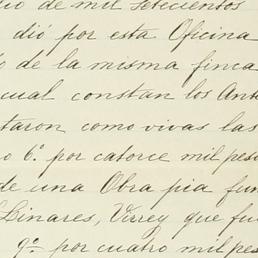 dio de mil setecientos
dió por esta Oficina
o de la misma finca
cual constan los Ante
taron como vivas las
o 6º. por catorce mil pes
de una Obra pia fun
Linares, Virrey que fu
9º. por cuatro mil pes